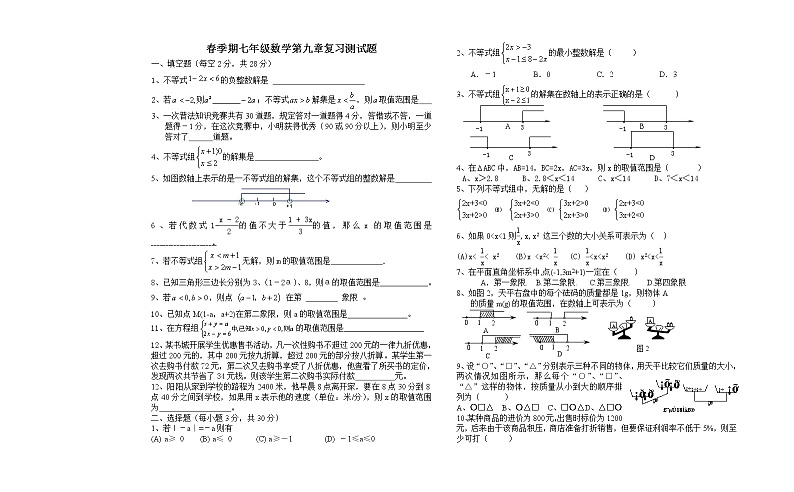 春季期七年级数学第九章复习测试题
一、填空题（每空2分，共28分）
1、不等式1-2x<6的负整数解是
2、若a<-2,则a² -2a；不等式ax>b解集是x<b/a，则a取值范围是
3、一次普法知识竞赛共有30道题，规定答对一道题得4分，答错或不答，一道
题得－1分，在这次竞赛中，小明获得优秀（90或90分以上），则小明至少
答对了 道题。
4、不等式组 x≤2 的解集是 。
5、如图数轴上表示的是一不等式组的解集，这个不等式组的整数解是
6、若代数式1-(x-2)/2的值不大于(1+3x)/3的值，那么x的取值范围是
7、若不等式组{x<m+1 x>2m-1无解，则m的取值范围是 。
8、已知三角形三边长分别为3、(1－2a)、8，则a的取值范围是 。
9、若a<0,b>0，则点（a-1，b+2）在第 象限。
10、已知点M(1-a，a+2)在第二象限，则a的取值范围是 。
11、在方程组{x+y=a 2x-y=6中,已知x>0,y<0,则a的取值范围是
12、某书城开展学生优惠售书活动，凡一次性购书不超过200元的一律九折优惠，
超过200元的，其中200元按九折算，超过200元的部分按八折算。某学生第一
次去购书付款72元，第二次又去购书享受了八折优惠，他查看了所买书的定价，
发现两次共节省了34元钱。则该学生第二次购书实际付款 元。
13、阳阳从家到学校的路程为2400米，他早晨8点离开家，要在8点30分到8
点40分之间到学校，如果用x表示他的速度（单位：米/分），则x的取值范围
为 。
二、选择题（每小题3分，共30分）
1、若|－a|=－a则有
(A) a≥ 0 (B) a≤ 0 (C) a≥－1 (D) －1≤a≤0
2、不等式组{2x>-3 x-1≤8-2x的最小整数解是（ ）
A．－1 B．0 C．2 D．3
3、不等式组{x+1≥0 x-2≤1的解集在数轴上的表示正确的是（ ）
-1 A 3 -1 B 3
-1 3 -1 3
C D
4、在△ABC中，AB=14，BC=2x，AC=3x，则x的取值范围是（ ）
A、x>2.8 B、2.8<x<14 C、x<14 D、7<x<14
5、下列不等式组中，无解的是（ ）
{2x+3<0 3x+2>0 (B) {3x+2<0 2x+3>0 (C) {3x+2>0 2x+3>0 (D) {2x+3<0 3x+2<0
6、如果0<x<1则1/x,x,x² 这三个数的大小关系可表示为（ ）
(A)x<1/x<x² (B)x<x²<1/x (C)1/x<x<x² (D) x²<x<1/x
7、在平面直角坐标系中,点(-1,3m²+1)一定在（ ）
A．第一象限 B.第二象限 C.第三象限 D.第四象限
8、如图2，天平右盘中的每个砝码的质量都是1g，则物体A
的质量m(g)的取值范围，在数轴上可表示为（ ）
0 1 2 0 1 2
A B
0 1 2 0 1 2
C D
图2
9、设“○”、“□”、“△”分别表示三种不同的物体，用天平比较它们质量的大小，
两次情况如图所示，那么每个“○”、“□”、
“△”这样的物体，按质量从小到大的顺序排
列为（ ）
A、○□△ B、○△□ C、□○△ D、△□○
10.某种商品的进价为800元,出售时标价为1200
元，后来由于该商品积压，商店准备打折销售，但要保证利润率不低于5%，则至
少可打（ ）